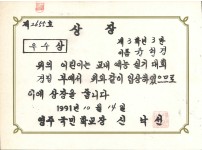 제2655호
상장
우수상
제3학년3반
위의 어린이는 교내 예능 실기 대회
경필 부에서 위와같이 입상하였으므로
이에 상장을 줍니다
1991년 10월 14일
국민학교장 신